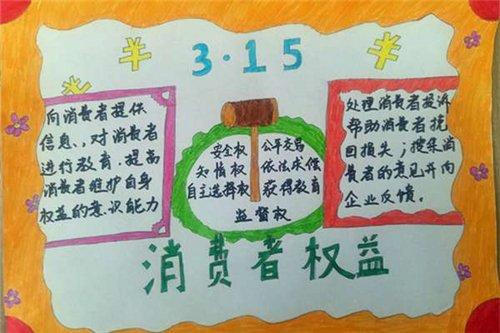 3·15
向消费者提供
信息、对消费者
进行教育.提高
消费者维护自身
权益的意识能力
安全权 公平交易
知情权 依法求偿
自主选择权 获得教育
监督权
处理消费者投诉
帮助消费者挽
回损失；搜集消
费者的意见并向
企业反馈。
消费者权益